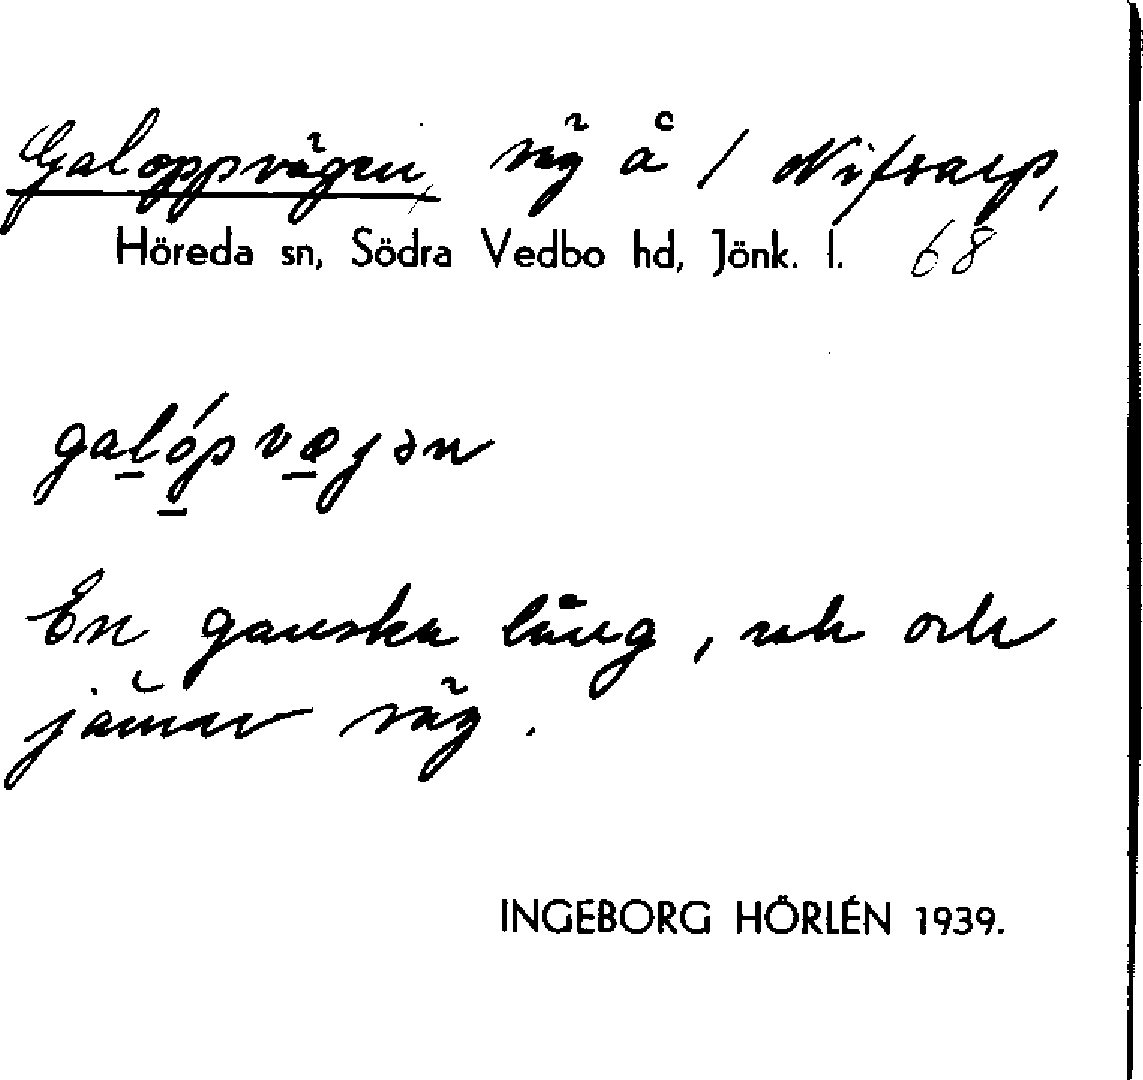 Galoppvägen, väg å 1 Nifsarp,
Höreda sn, Södra Vedbo hd, Jönk. l. 68
galópvæjən
En ganska lång, rak och
jämn väg.
INGEBORG HÖRLÉN 1939.